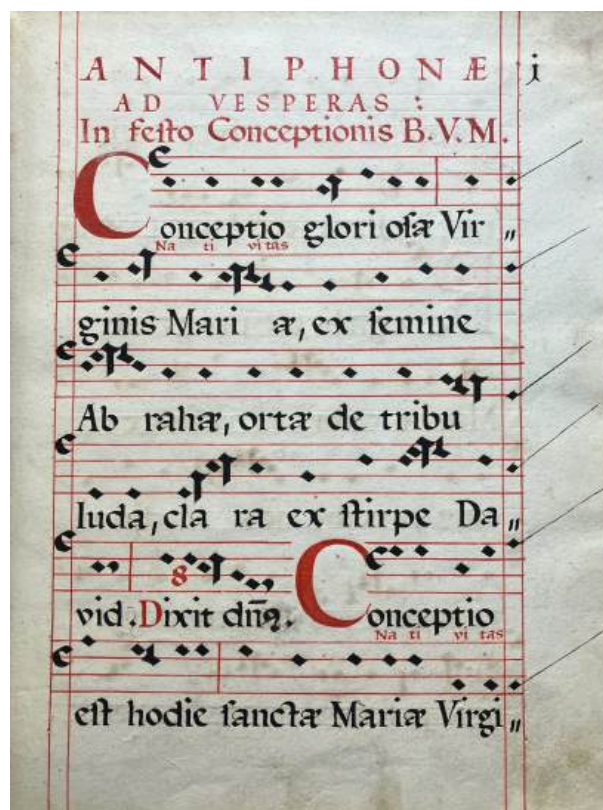 ANTIPHONÆ i
AD VESPERAS:
In festo Conceptionis B.V.M.
Conceptio glori osæ Vir„
Na ti vi tas
ginis Mari æ, ex semine
Ab rahæ, ortæ de tribu
Iuda, cla ra ex stirpe Da„
8
vid. Dixit dñs. Conceptio
Na ti vi tas
est hodie sanctæ Mariæ Virgi„